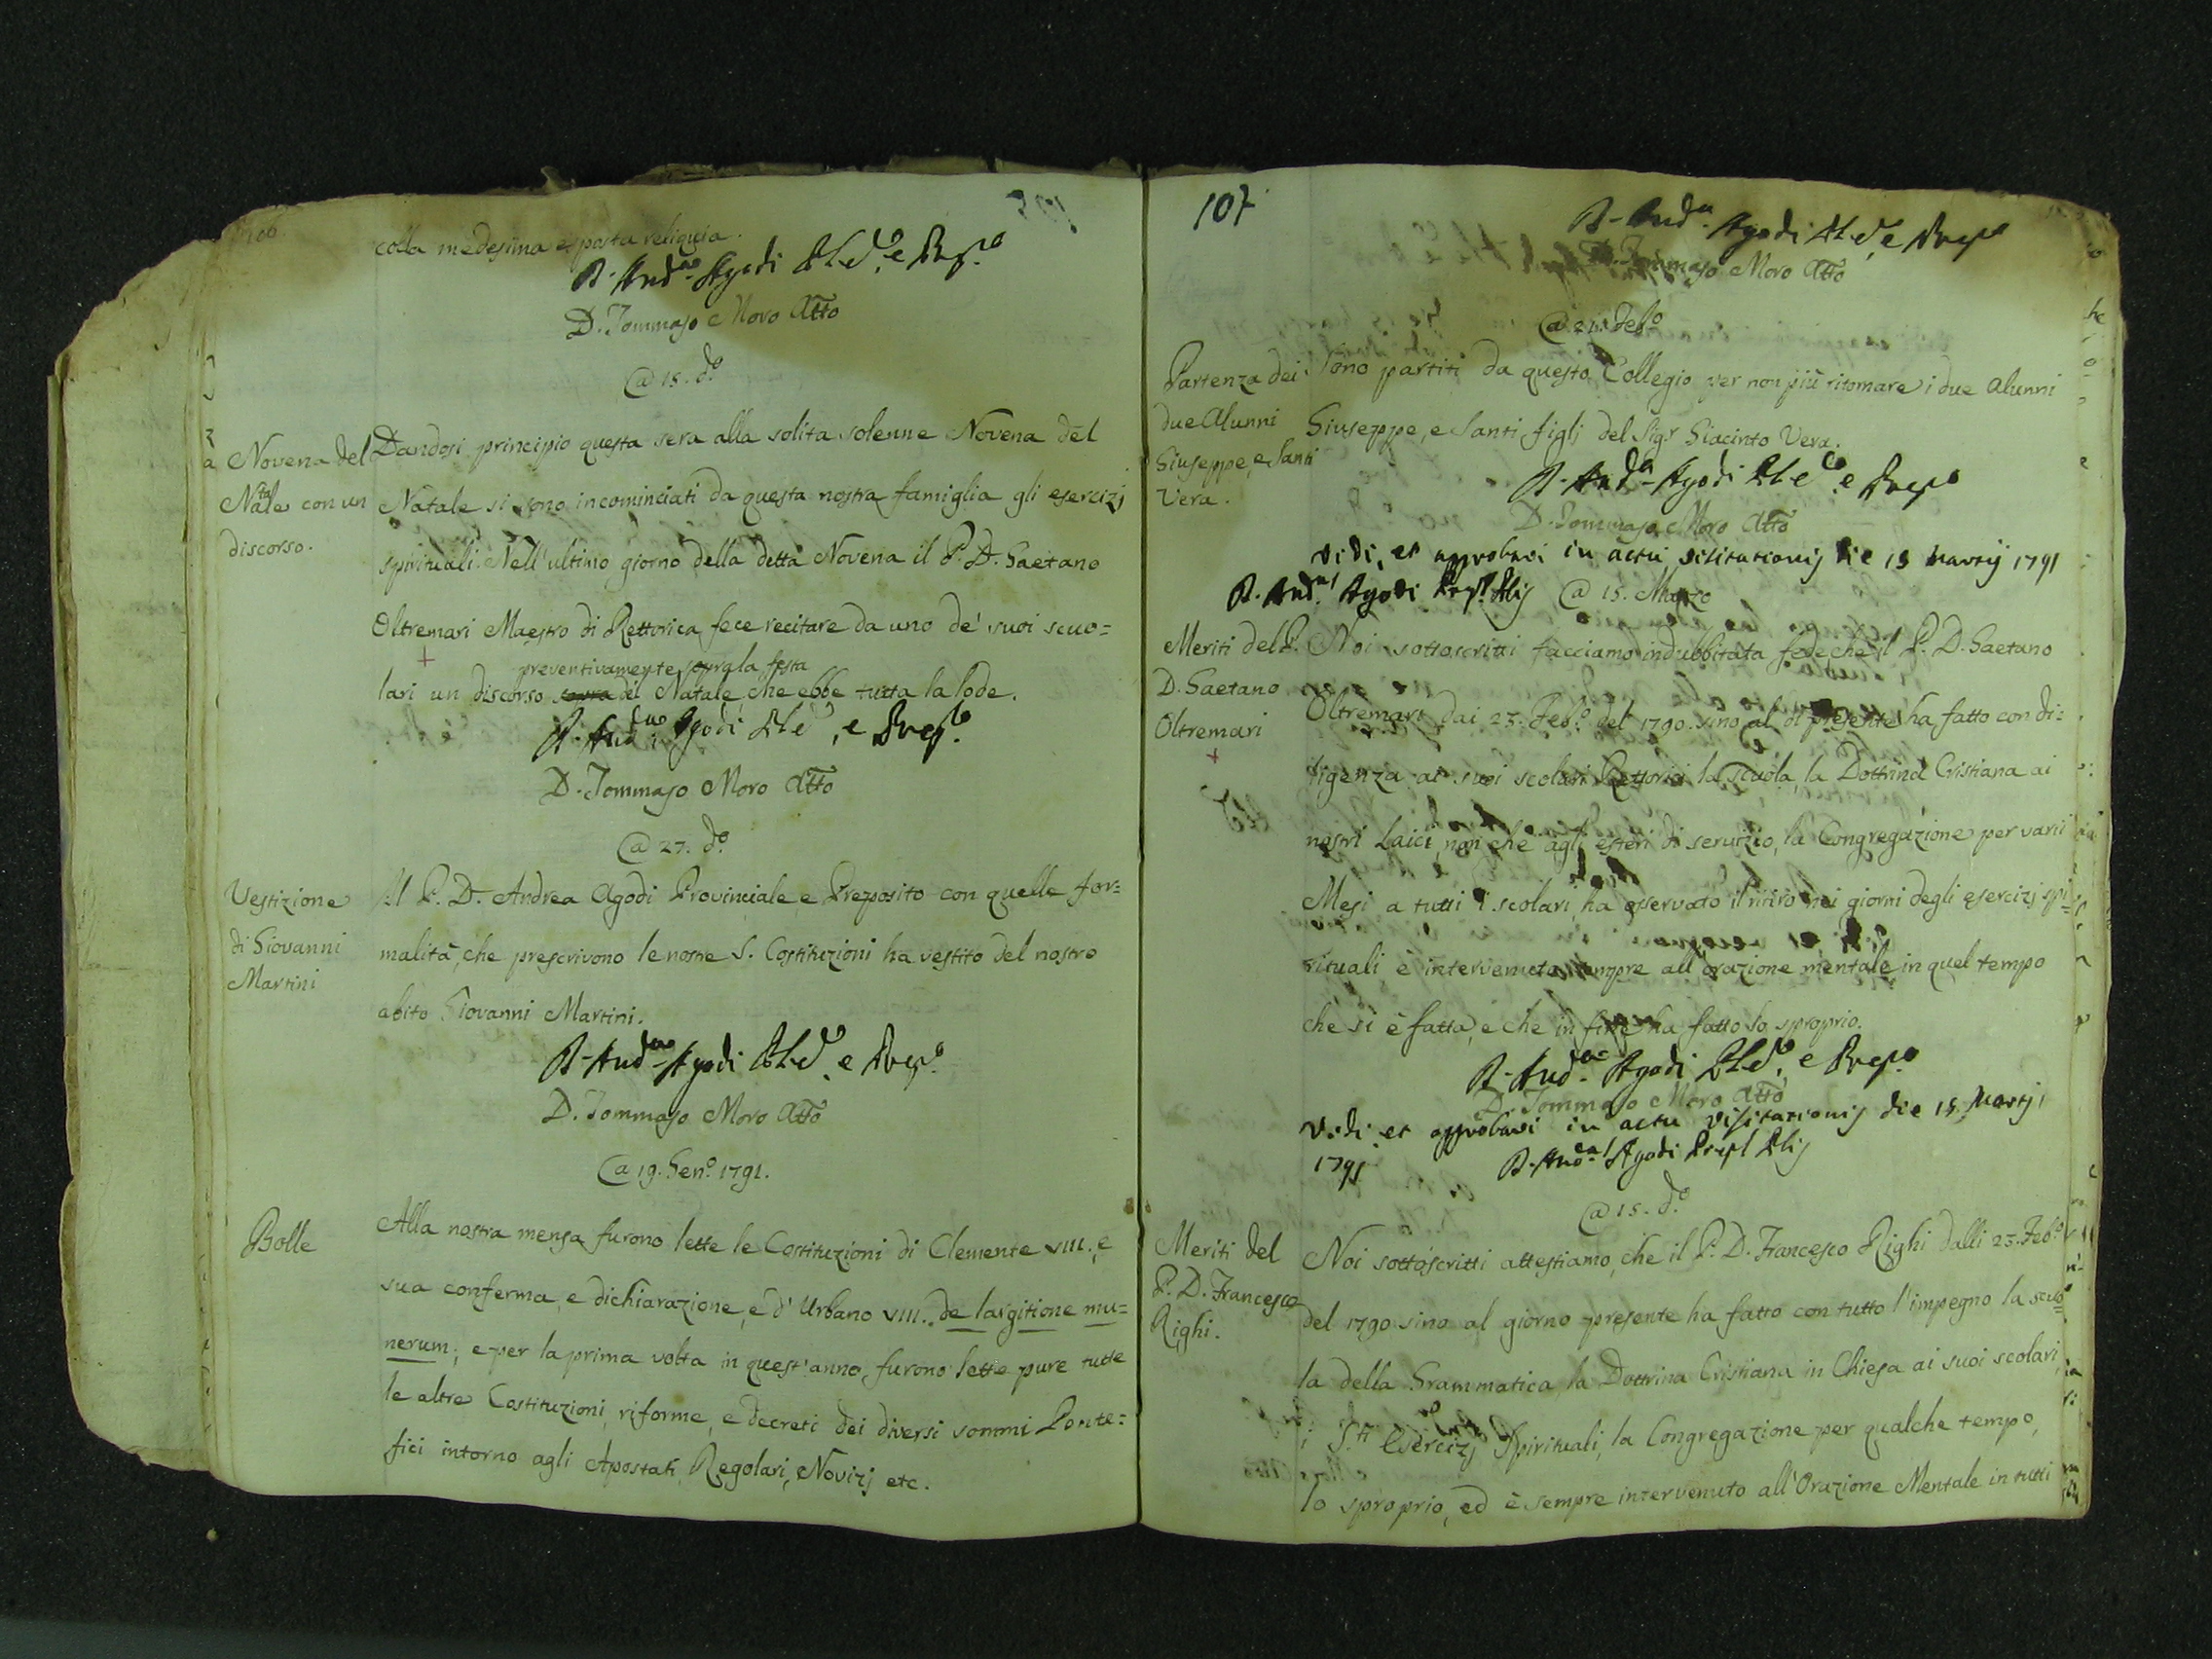 106
colla medesima esposta reliquia.
D. And.a Agodi e Prep.o
D. Tommaso Moro Atto
@ 15. d.o
Novena del
Natale con un
discorso.
Dandosi principio questa sera alla solita solenne Novena del
Natale si sono incominciati da questa nostra famiglia gli esercizj
spirituali. Nell'ultimo giorno della detta Novena il P. D. Gaetano
Oltremari Maestro di Rettorica fece recitare da uno de' suoi scuo=
preventivamente sopra la festa
lari un discorso sopra del Natale, che ebbe tutta la lode.
D. And.a Agodi e Prep.o
D. Tommaso Moro Atto
@ 27. d.o
Vestizione
di Giovanni
Martini
Il P. D. Andrea Agodi Provinciale, e Preposito con quelle for=
malità, che prescrivono le nostre S. Costituzioni ha vestito del nostro
abito Giovanni Martini.
D. And.a Agodi e Prep.o
D. Tommaso Moro Atto
@ 19. Gen.o 1791.
Bolle
Alla nostra mensa furono lette le Costituzioni di Clemente VIII., e
sua conferma, e dichiarazione, e d' Urbano VIII. de largitione mu=
nerum; e per la prima volta in quest'anno, furono lette pure tutte
le altre Costituzioni, riforme, e decreti dei diversi sommi Ponte=
fici intorno agli Apostati, Regolari, Novizj etc.
107
D. And.a Agodi e Prep.o
D. Tommaso Moro Atto
@ 21. Feb.o
Partenza dei
due Alunni
Giuseppe, e Santi
Vera.
Sono partiti da questo Collegio per non più ritornare i due Alunni
Giuseppe, e Santi figlj del Sig.r Giacinto Vera.
D. And.a Agodi e Prep.o
D. Tommaso Moro Atto
Vidi, et approbavi in actu visitationis die 15 Martij 1791
D. And.as Agodi
@ 15. Marzo
Meriti del P.
D. Gaetano
Oltremari
Noi sottoscritti facciamo indubbitata fede che il P. D. Gaetano
Oltremari dai 23. Feb.o del 1790. sino al dì presente ha fatto con di=
ligenza ai suoi scolari Rettorici la scuola, la Dottrina Cristiana ai
nostri Laici, non che agli esteri di servizio, la Congregazione per varii
Mesi a tutti i scolari, ha osservato il ritiro nei giorni degli esercizj spi=
rituali è intervenuto sempre all'orazione mentale in quel tempo
che si è fatta, e che in fine ha fatto lo sproprio.
D. And.a Agodi e Prep.o
D. Tommaso Moro Atto
Vidi et approbavi in actu visitationis die 15 Martij
1791
D. And.as Agodi
@ 15. d.o
Meriti del
P. D. Francesco
Righi.
Noi sottoscritti attestiamo, che il P. D. Francesco Righi dalli 23. Feb.o
del 1790 sino al giorno presente ha fatto con tutto l'impegno la scuo=
la della Grammatica, la Dottrina Cristiana in Chiesa ai suoi scolari,
i S.ti Esercizj Spirituali, la Congregazione per qualche tempo,
lo sproprio, ed è sempre intervenuto all'Orazione Mentale in tutti